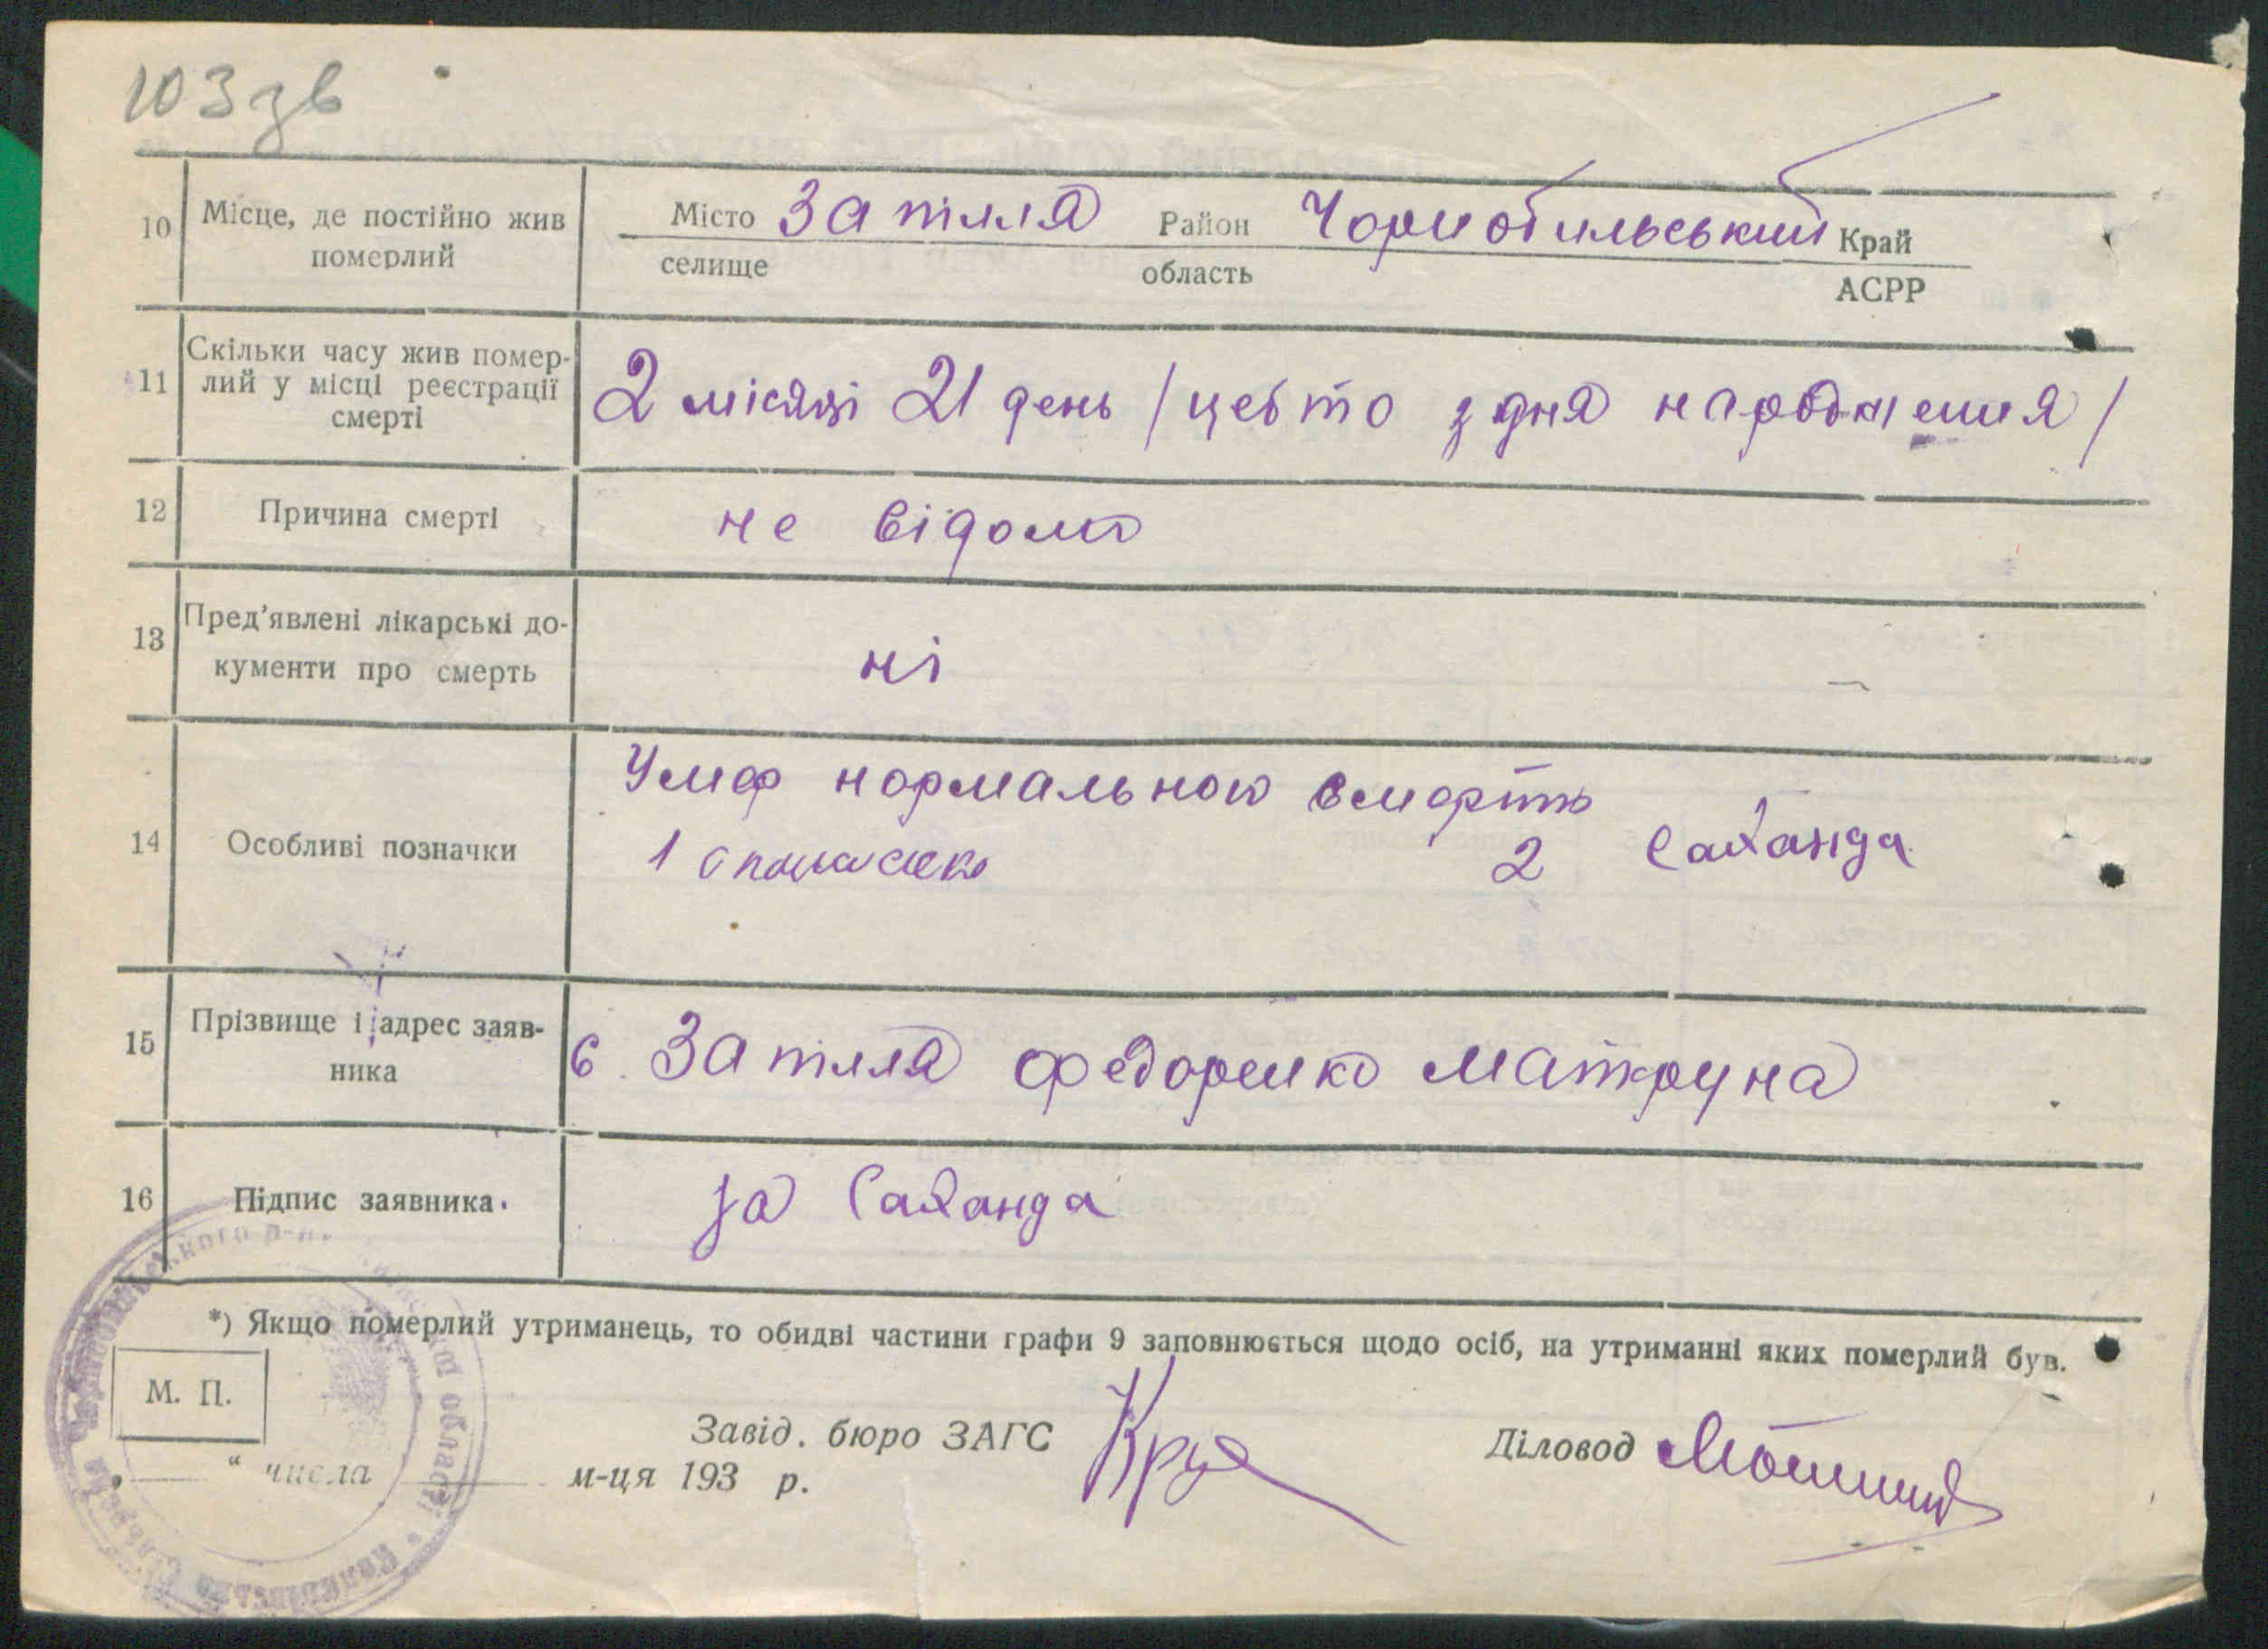 103 зв
10 Місце, де постійно жив померлий
Місто Затілля Район Чорнобильський Край
селище область АСРР
11 Скільки часу жив помер-
лий у місці реєстрації
смерті
2 місяці 21 день / цебто з дня народження /
12 Причина смерті не відомо
13 Пред’явлені лікарські до-
кументи про смерть
ні
14 Особливі позначки
Умер нормальною смерть
1 Опанасенко 2 Саханда
15 Прізвище і адрес заяв-
ника
с. Затілля Федоренко Матруна
16 Підпис заявника. за Саханда
*) Якщо померлий утриманець, то обидві частини графи 9 заповнюється щодо осіб, на утриманні яких померлий був.
М. П.
Завід. бюро ЗАГС Діловод
„ “ числа м-ця 193 р.